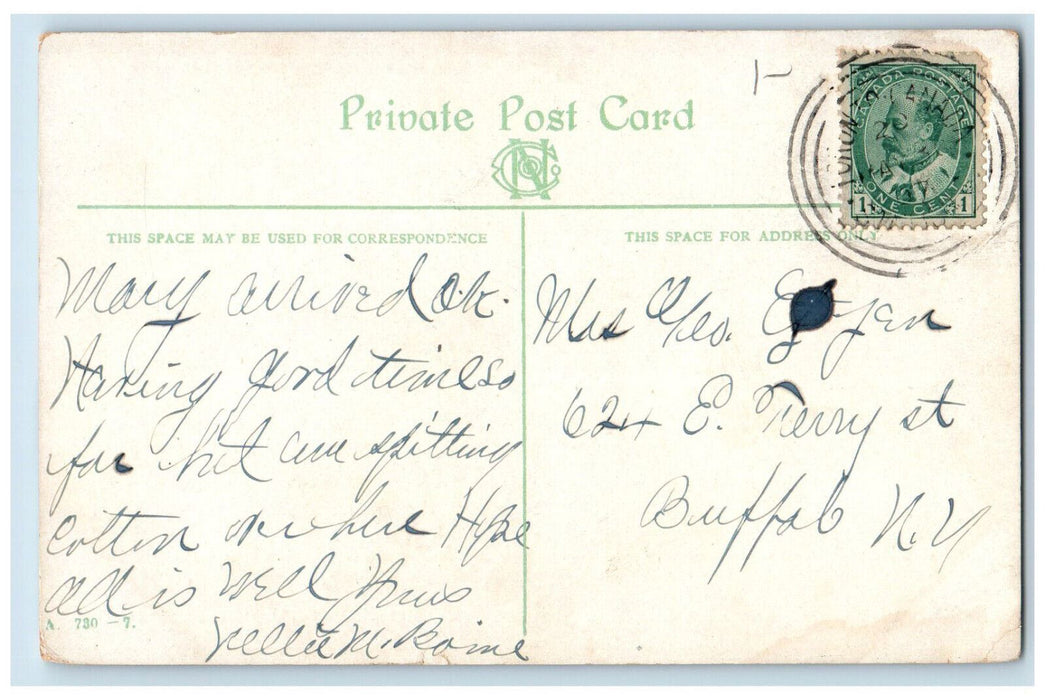 Private Post Card
CANADA POSTAGE
1 ONE CENT 1
THIS SPACE MAY BE USED FOR CORRESPONDENCE
THIS SPACE FOR ADDRESS ONLY
Mary arrived O.K.
Having good time so
far but am spitting
cotton over here Hope
all is well Yours
Nellie M.
A. 730 - 7.
Mrs Geo.
624 E. Ferry st
Buffalo N.Y